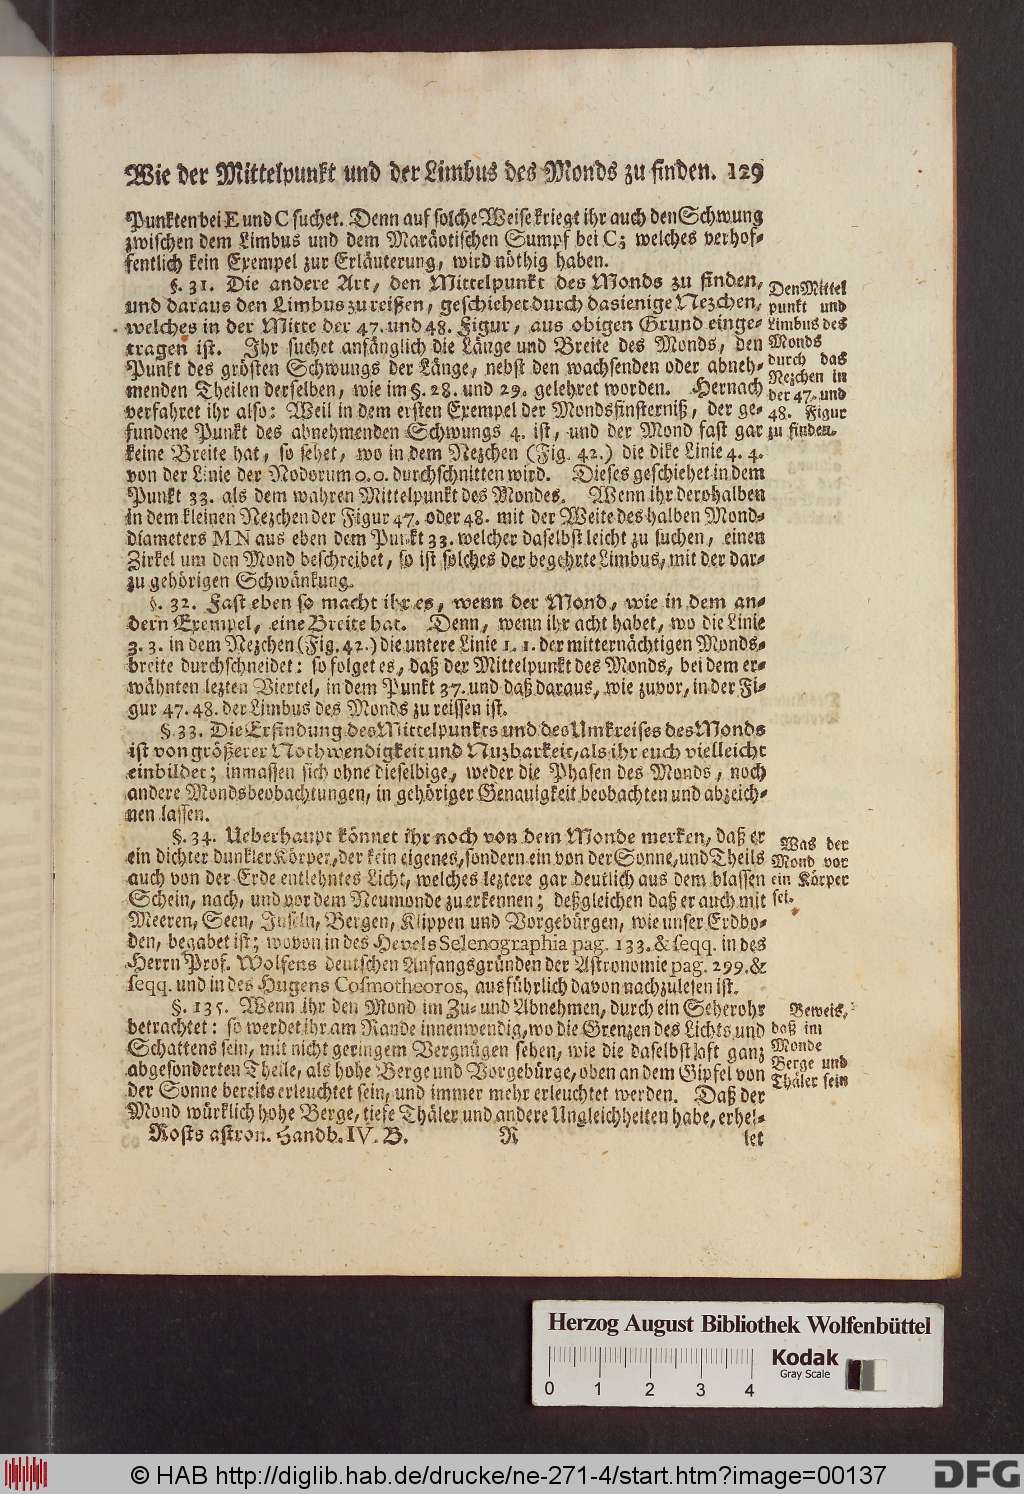 Wie der Mittelpunkt und der Limbus des Monds zu finden. 129
Punkten bei E und C suchet. Denn auf solche Weise kriegt ihr auch den Schwung
zwischen dem Limbus und dem Maräotischen Sumpf bei C; welches verhof-
fentlich kein Exempel zur Erläuterung, wird nöthig haben.
§. 31. Die andere Art, den Mittelpunkt des Monds zu finden,
und daraus den Limbus zu reißen, geschiehet durch dasienige Nezchen,
welches in der Mitte der 47. und 48. Figur, aus obigen Grund einge-
tragen ist. Ihr suchet anfänglich die Länge und Breite des Monds, den
Punkt des grösten Schwungs der Länge, nebst den wachsenden oder abneh-
menden Theilen derselben, wie im §. 28. und 29. gelehret worden. Hernach
verfahret ihr also: Weil in dem ersten Exempel der Mondsfinsterniß, der ge-
fundene Punkt des abnehmenden Schwungs 4. ist, und der Mond fast gar
keine Breite hat, so sehet, wo in dem Nezchen (Fig. 42.) die dike Linie 4. 4.
von der Linie der Nodorum 0. 0. durchschnitten wird. Dieses geschiehet in dem
Punkt 33. als dem wahren Mittelpunkt des Mondes. Wenn ihr derohalben
in dem kleinen Nezchen der Figur 47. oder 48. mit der Weite des halben Mond-
diameters M N aus eben dem Punkt 33. welcher daselbst leicht zu suchen, einen
Zirkel um den Mond beschreibet, so ist solches der begehrte Limbus, mit der dar-
zu gehörigen Schwänkung.
§. 32. Fast eben so macht ihr es, wenn der Mond, wie in dem an-
dern Exempel, eine Breite hat. Denn, wenn ihr acht habet, wo die Linie
3. 3. in dem Nezchen (Fig. 42.) die untere Linie 1. 1. der mitternächtigen Monds-
breite durchschneidet: so folget es, daß der Mittelpunkt des Monds, bei dem er-
wähnten lezten Viertel, in dem Punkt 37. und daß daraus, wie zuvor, in der Fi-
gur 47. 48. der Limbus des Monds zu reissen ist.
§. 33. Die Erfindung des Mittelpunkts und des Umkreises des Monds
ist von größerer Nothwendigkeit und Nuzbarkeit, als ihr euch vielleicht
einbildet; inmassen sich ohne dieselbige, weder die Phasen des Monds, noch
andere Mondsbeobachtungen, in gehöriger Genauigkeit beobachten und abzeich-
nen lassen.
§. 34. Ueberhaupt könnet ihr noch von dem Monde merken, daß er
ein dichter dunkler Körper, der kein eigenes, sondern ein von der Sonne, und Theils
auch von der Erde entlehntes Licht, welches leztere gar deutlich aus dem blassen
Schein, nach, und vor dem Neumonde zu erkennen; deßgleichen daß er auch mit
Meeren, Seen, Inseln, Bergen, Klippen und Vorgebürgen, wie unser Erdbo-
den, begabet ist; wovon in des Hevels Selenographia pag. 133. & seqq. in des
Herrn Prof. Wolfens deutschen Anfangsgründen der Astronomie pag. 299. &
seqq. und in des Hugens Cosmotheoros, ausführlich davon nachzulesen ist.
§. 135. Wenn ihr den Mond im Zu- und Abnehmen, durch ein Seherohr
betrachtet: so werdet ihr am Rande innenwendig, wo die Grenzen des Lichts und
Schattens sein, mit nicht geringem Vergnügen sehen, wie die daselbst oft ganz
abgesonderten Theile, als hohe Berge und Vorgebürge, oben an dem Gipfel von
der Sonne bereits erleuchtet sein, und immer mehr erleuchtet werden. Daß der
Mond würklich hohe Berge, tiefe Thäler und andere Ungleichheiten habe, erhel-
Rosts astron. Handb. IV. B. R let
Den Mittel
punkt und
Limbus des
Monds
durch das
Nezchen in
der 47. und
48. Figur
zu finden.
Was der
Mond vor
ein Körper
sei.
Beweis,
daß im
Monde
Berge und
Thäler sein
Herzog August Bibliothek Wolfenbüttel
Kodak
Gray Scale
0 1 2 3 4
© HAB http://diglib.hab.de/drucke/ne-271-4/start.htm?image=00137
DFG